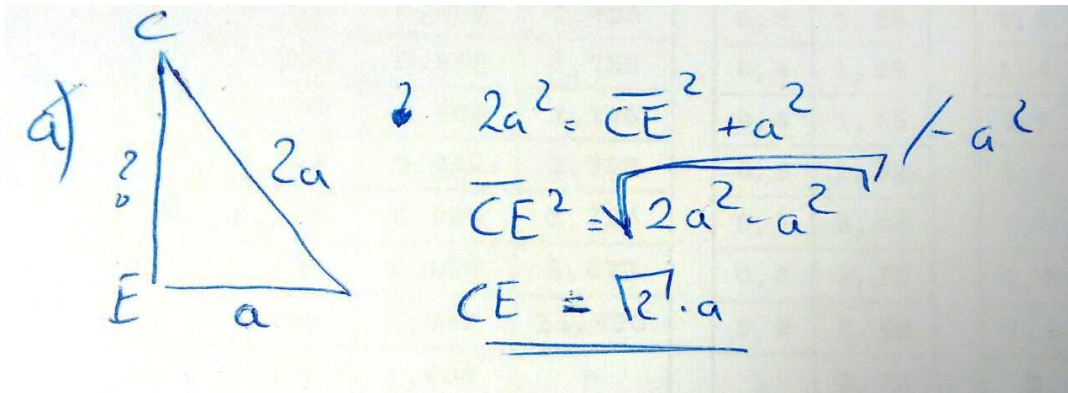 a)
C
?
2a
E
a
2a² = CE̅² + a² /- a²
CE̅² = √(2a² - a²)
CE = √2 · a